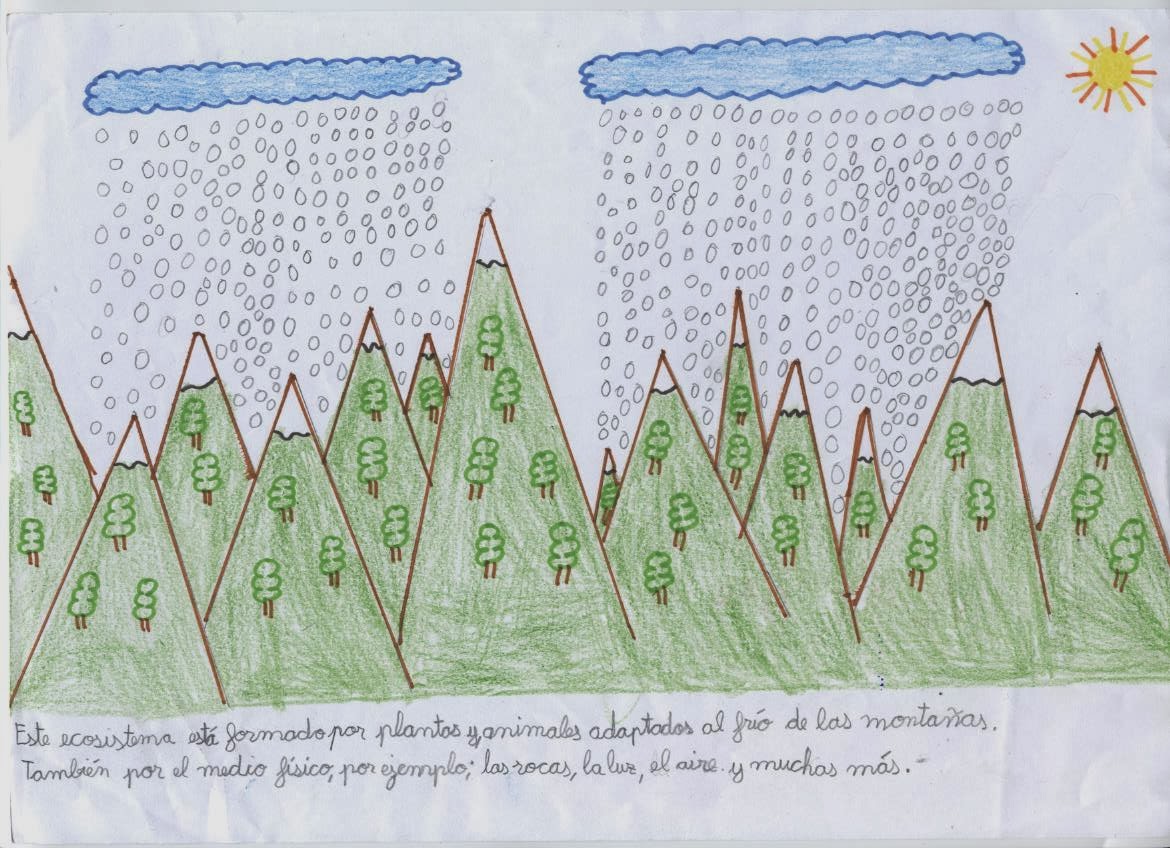 Este ecosistema está formado por plantas y animales adaptados al frío de las montañas.
También por el medio físico, por ejemplo; las rocas, la luz, el aire. y muchas más.-